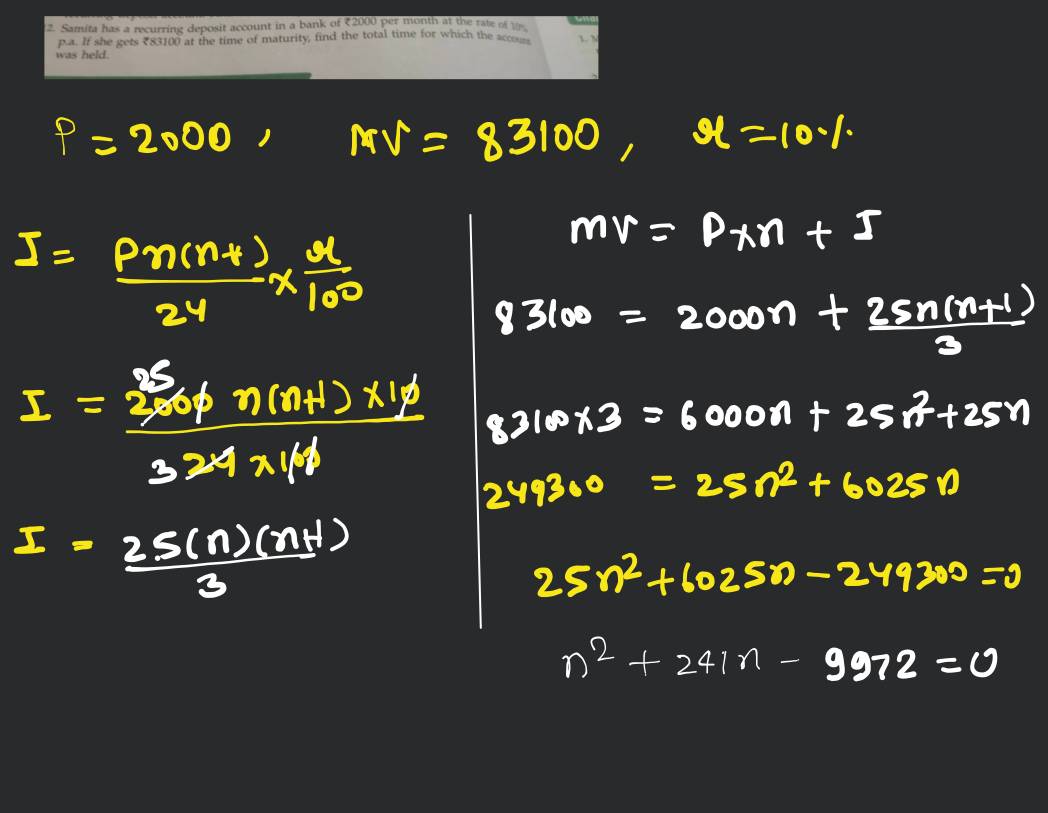 2. Samita has a recurring deposit account in a bank of ₹2000 per month at the rate of 10%
p.a. If she gets ₹83100 at the time of maturity, find the total time for which the account
was held.
P = 2000 , MV = 83100 , r = 10%
I = Pn(n+) / 24 × r / 100
I = 2000 n(n+1) × 10 / 24 × 100
25
3
I = 25(n)(n+1) / 3
MV = P×n + I
83100 = 2000n + 25n(n+1) / 3
83100×3 = 6000n + 25n²+25n
249300 = 25n² + 6025n
25n²+6025n-249300 =0
n² + 241n - 9972 =0